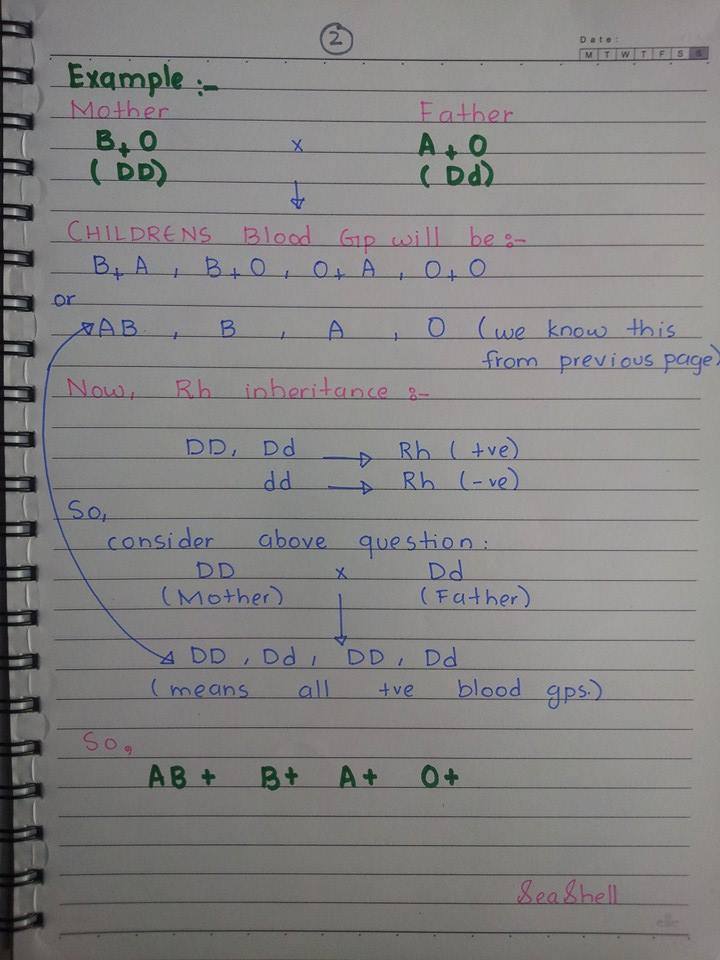 2
Date:
M T W T F S S
Example :-
Mother Father
B+O x A+O
(DD) (Dd)
CHILDRENS Blood Gp will be :-
B+A , B+O , O+A , O+O
or
AB , B , A , O (we know this
from previous page)
Now, Rh inheritance :-
DD, Dd → Rh (+ve)
dd → Rh (-ve)
So,
consider above question:
DD x Dd
(Mother) (Father)
DD , Dd , DD , Dd
(means all +ve blood gps.)
So,
AB+ B+ A+ O+
SeaShell